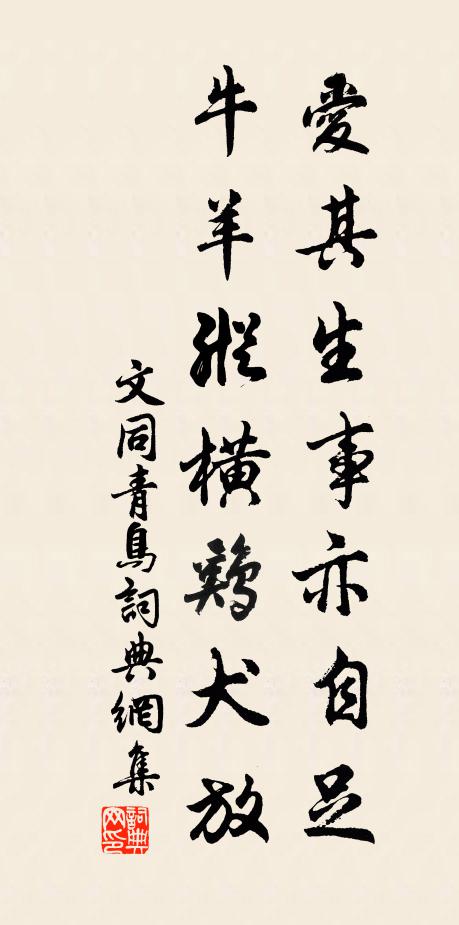 愛其生事亦自足
牛羊縱橫鷄犬放
文同青鳥詞典網集
詞典網印